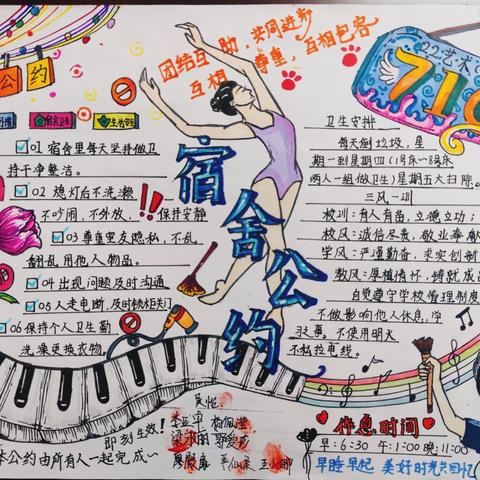 团结互助，共同进步
互相尊重，互相包容
公约
22艺术
710
宿舍公约
01 宿舍里每天坚持做卫
持干净整洁。
02 熄灯后不洗漱
不吵闹，不外放，!!保持安静
03 尊重室友隐私，不乱
翻乱用他人物品。
04 出现问题及时沟通
05 人走电断，及时锁柜关门
06 保持个人卫生勤
洗澡更换衣物
卫生安排
每天倒垃圾，星
期一到星期四(1号床~8号床
两人一组做卫生)星期五大扫除。
三风一训
校训：有人有苗，立德立功；
校风：诚信尽责，敬业奉献
学风：严谨勤奋，求实创新
教风：厚植情怀，铸就成
自觉遵守学校管理制度
不做影响他人休息，学
习之事。不使用明火
不私拉电线。
即刻生效！
本公约由所有人一起完成~
作息时间
早：6:30 午：1:00 晚：11:00
早睡早起 美好时光共回忆